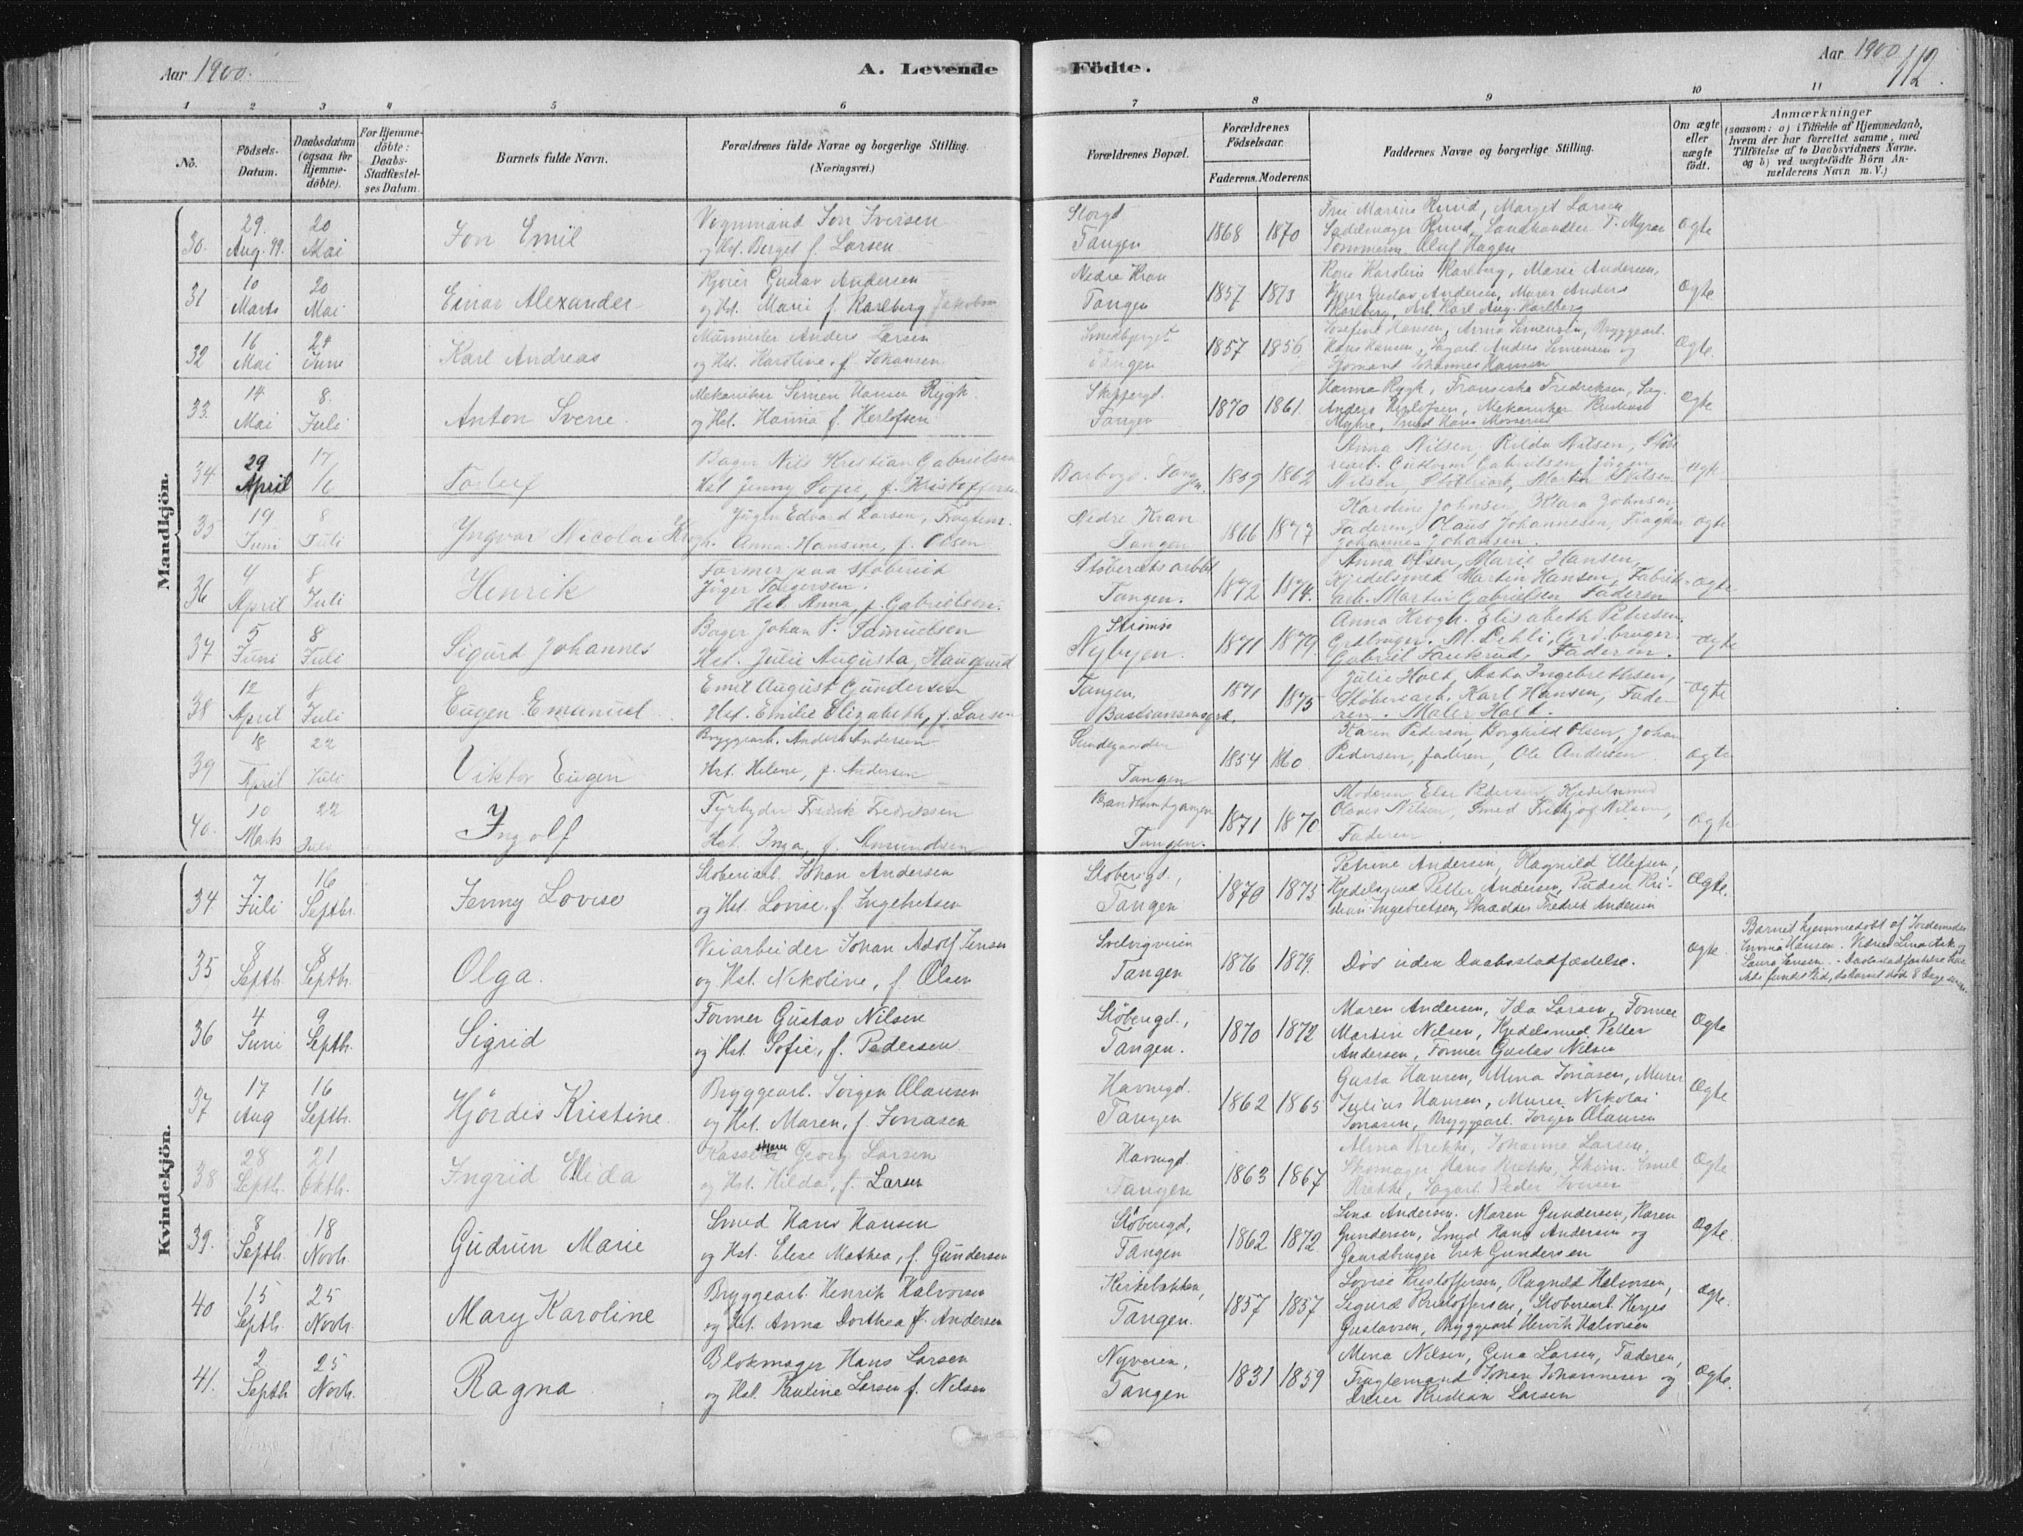 Aar 1900.
A. Levende
Födte.
Aar 1900
112.
1 2 3 4 5 6 7 8 9 10 11
No.
Födsels-
Datum.
Daabsdatum
(ogsaa for
Hjemme-
döbte).
For Hjemme-
döbte:
Daabs-
Stadfæstel-
ses Datum.
Barnets fulde Navn.
Forældrenes fulde Navne og borgerlige Stilling.
(Næringsvei.)
Forældrenes Bopæl.
Forældrenes
Födselsaar.
Faderens. Moderens.
Faddernes Navne og borgerlige Stilling.
Om ægte
eller
uægte
födt.
Anmærkninger
(saasom: a) i Tilfælde af Hjemmedaab,
hvem der har forrettet samme, med
Tilföielse af to Daabsvidners Navne.
og b) ved uægtefödte Börn An-
melderens Navn m. V.)
Mandkjön.
30. 29 Aug. 99. 20 Mai
Jon Emil
Vognmand Jon Iversen
og Hst. Berget f. Larsen
Storgd
Tangen
1868 1870
Fru Marius Ruud, Marget Larsen
Sadelmager Ruud, Landhandler T. Myrar
Tømmerm Oluf Hagen
Ægte
31 10 Marts 20 Mai
Einar Alexander
Kjører Gustav Andersen
og Hst. Marie f. Karlberg Jakobsen
Nedre Kran
Tangen
1857 1873
Karoline Karlberg, Marie Andersen,
Kjører Gustav Andersen, Murer Anders
Karlberg, Arb. Karl Aug. Karlberg
Ægte
32 16 Mai 24 Juni
Karl Andreas
Anders Larsen
og Hst. Karoline, f. Johansen
Smedbjerget
Tangen
1857 1856
Josefine Hansen, Anna Simensen, Bryggearb.
Hans Hansen, Sagarb. Anders Simensen og
Sjømand Johannes Hansen
Ægte.
33. 14 Mai 8 Juli
Anton Sverre.
Mekaniker Simen Hansen Rygh
og Hst. Hanna f. Herlofsen
Skippergd.
Tangen
1870 1861.
Hanna Rygh, Franciska Fredriksen, Sag.
Anders Herlofsen, Mekaniker Kristian
Myhre, Smed Hans Mosserud
Ægte
34 29 April 17/6
Torleif
Bager Nils Kristian Gabrielsen
Hst Jenny Sofie, f. Kristoffersen
Tangen.
1859 1862
Anna Nilsen, Hilda Nilsen, Støbe
riarb. Gustav Gabrielsen, Jørgen
Nilsen Støberiarb, Martin Nilsen
ægte
35 19 Juni 8 Juli
Yngvar Nicolai Krogh.
Jørgen Edvard Larsen, Fragtem.
Anna Hansine, f. Olsen
Nedre Kran
Tangen
1866 1877
Karoline Johnsen, Klara Johnsen,
Faderen, Olaus Johannesen, Fragtm
Johannes Johansen.
ægte
36 4 April 8 Juli
Henrik
Former paa Støberiet
Jörger Torgersen.
Hst. Anna, f. Gabrielsen.
Støberiets arbb
Tangen.
1872 1874.
Anna Olsen, Marie Hansen,
Kjedelsmed Martin Hansen, Fabrik-
arb. Martin Gabrielsen Faderen
ægte
37 5 Juni 8 Juli
Sigurd Johannes
Bager Johan P. Samuelsen
Hst. Julie Augusta, Haugerud
Strømsø
Nybyen.
1871 1879.
Anna Krogh. Elisabeth Petersen.
Grdbruger. M. Dehli, Grdbruger
Gabriel Faukrud. Faderen.
ægte
38 12 April 8 Juli
Eugen Emanuel
Emil August Gundersen
Hst. Emilie Elizabeth, f. Larsen
Tangen,
Bastiansensgrd.
1871 1875
Julie Holt, Asta Ingebretsen,
Støberiarb. Karl Hansen, Fade-
ren. Maler Holt.
ægte
39 18 April 22 Juli
Viktor Eugen
Bryggearb. Anders Andersen
Hst. Helene, f. Andersen
Tangen
1854 1860.
Karen Pedersen Borghild Olsen, Johan
Pedersen, faderen, Ole Andersen
ægte
40. 10 Marts 22 Juli
Ingolf
Fyrbøder Fredrik Fredriksen
Hst. Inga, f. Amundsen
Tangen.
1871 1870
Moderen, Else Pedersen, Kjedelsmed
Olaves Nilsen, Smed Fridtjof Nilsen,
Faderen
ægte
Kvindekjön.
34 7 Juli 16 Septbr.
Jenny Lovise
Støberiarb. Johan Andersen
og Hst. Lovise f. Ingebretsen
Støberigd.,
Tangen
1870 1875
Petrine Andersen, Ragnild Ellefsen,
Kjedelsmed Petter Andersen, Kri-
stian Ingebretsen, Fredrik Andersen
Ægte.
35 8 Septb. 8 Septbr.
Olga.
Veiarbeider Johan Adolf Jensen
og Hst. Nikoline, f. Olsen
Svelvigveien
Tangen
1876 1879.
Död uden Daabsstadfæstelse.
Ægte.
Barnet hjemmedøbt af Jordemoder
Emma Hansen. Lina Ask og
Laura Jensen.
36 4 Juni 9 Septbr.
Sigrid
Former Gustav Nilsen
og Hst. Sofie, f. Pedersen.
Støberigd.,
Tangen.
1870 1872
Maren Andersen, Ida Larsen, Former
Martin Nilsen, Kjedelsmed Petter
Andersen, Former Gustav Nilsen
Ægte
37 17 Aug 16 Septbr.
Hjørdis Kristine.
Bryggearb. Jørgen Olausen
og Hst. Maren, f. Jonasen
Havnegd.
Tangen
1862 1865
Gusta Hansen, Mina Jonasen, Murer
Julius Hansen, Murer Nikolai
Jonasen, Bryggearb. Jørgen Olausen
Ægte
38 28 Septb. 21 Oktb.
Ingrid Elida
Georg Larsen
og Hst. Hilda, f. Larsen
Havnegd.
Tangen
1863 1867
Alma Krekke, Johanne Larsen,
Skomager Hans Krekke, Emil
Krekke, Sagarb. Peder Iversen
Ægte
39. 8 Septb. 18 Novb.
Gudrun Marie
Smed Hans Hansen
og Hst. Elise Mathea, f. Gundersen
Støberigd,
Tangen
1862 1872
Lina Andersen. Maren Gundersen, Karen
Gundersen, Smed Hans Andersen og
Gaardbruger Erik Gundersen
Ægte.
40 15 Septb. 25 Novb.
Mary Karoline
Bryggearb. Henrik Halvorsen
og Hst. Anna Dorthea f. Andersen
Kirkeløkken,
Tangen.
1857 1857
Lovise Kristoffersen, Ragnild Halvorsen,
Sigurd Kristoffersen, Støberiarb.
Gustavsen, Bryggearb Henrik Halvorsen
Ægte.
41. 2 Septb 25 Novb.
Ragna
Blokmager Hans Larsen
og Hst. Pauline Larsen f. Nilsen
Nyveien,
Tangen
1831 1859
Mina Nilsen, Gina Larsen, Faderen,
Fragtemand Johan Johannesen og
Dreier Kristian Larsen
Ægte.